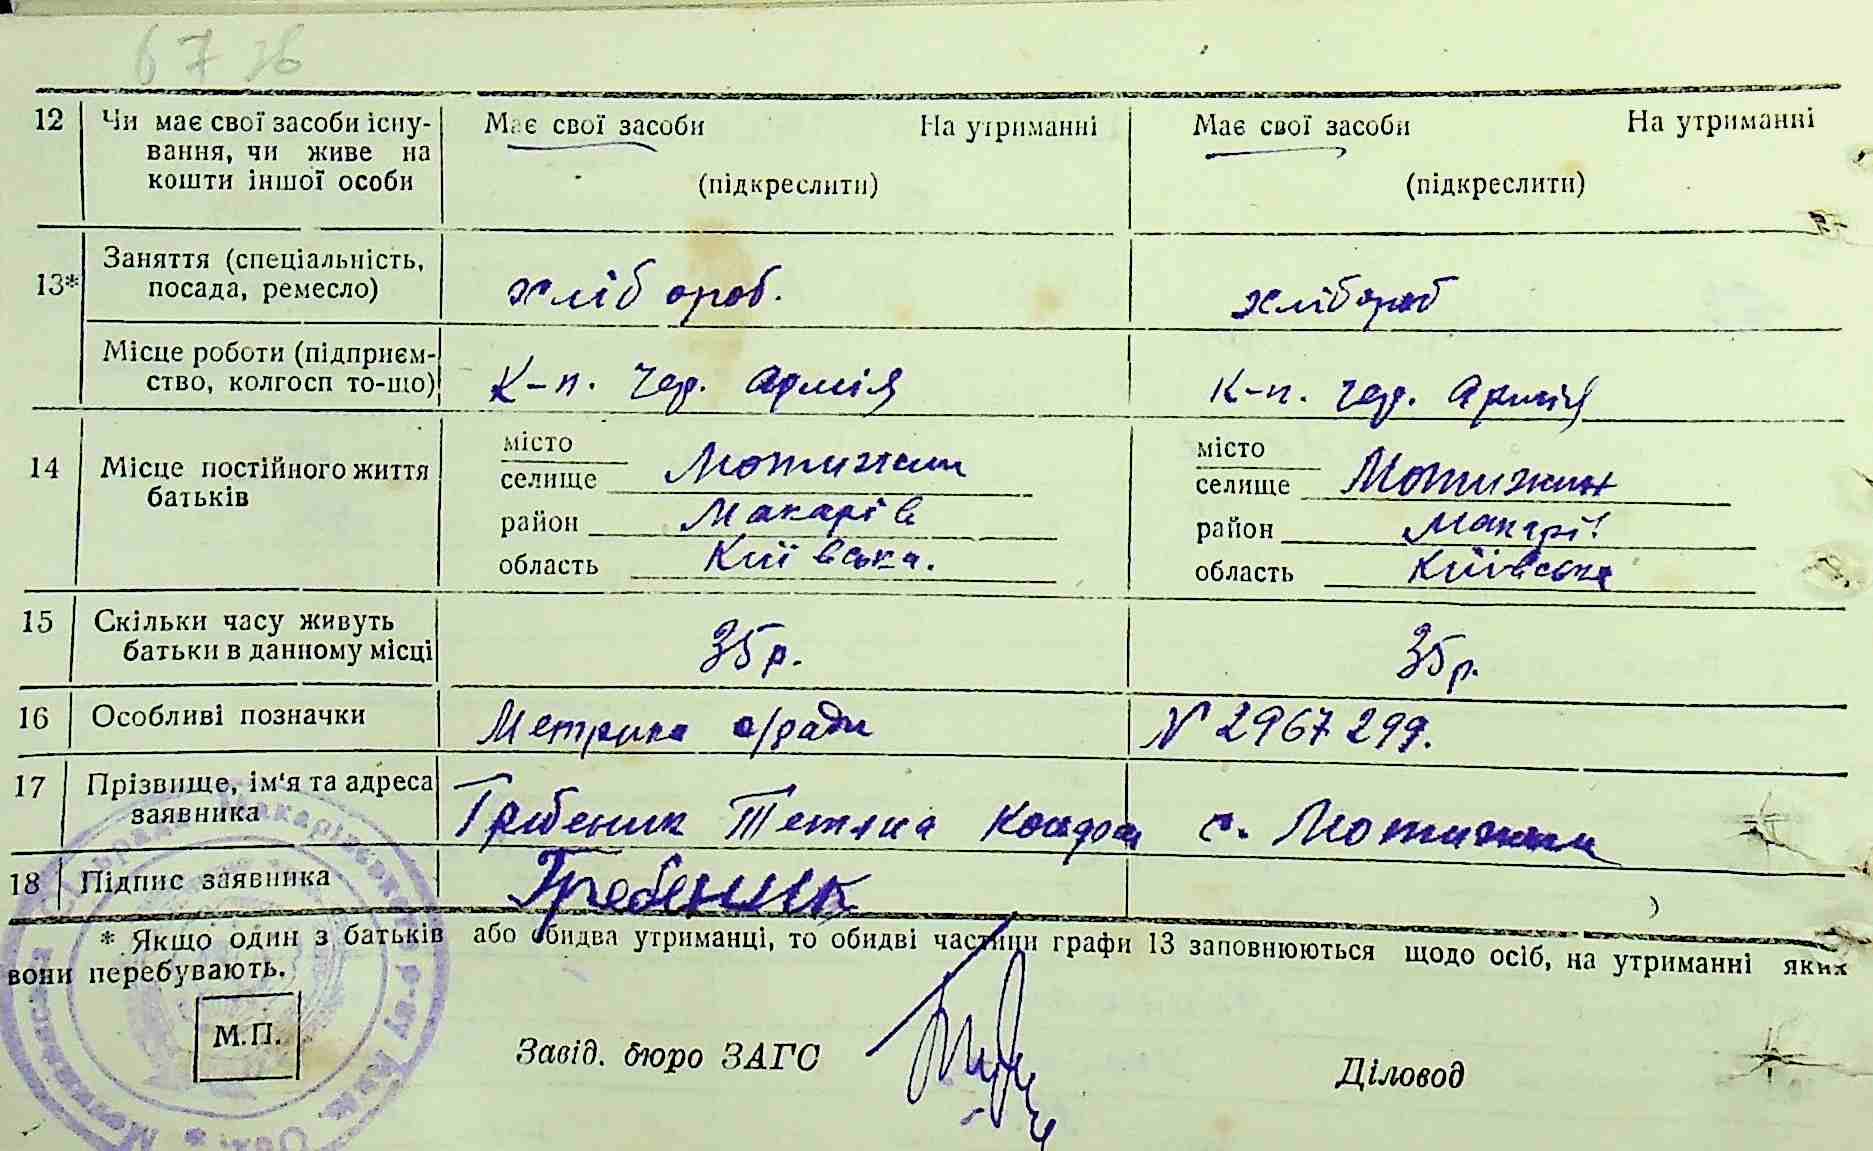 6736
12 Чи має свої засоби існу- Має свої засоби На утриманні Має свої засоби На утриманні
вання, чи живе на
кошти іншої особи (підкреслити) (підкреслити)
13* Заняття (спеціальність,
посада, ремесло) хлібороб. хлібороб
Місце роботи (підприєм-
ство, колгосп то-що) К-п. чер. армія К-п. чер. армія
14 Місце постійного життя місто місто
батьків селище Мотижин селище Мотижин
район Макарів район Макарі
область Київська. область Київська
15 Скільки часу живуть
батьки в данному місці 35 р. 35 р.
16 Особливі позначки Метрика с/ради № 2967299.
17 Прізвище, ім'я та адреса
заявника Гребеник Тетяна с. Мотижин
18 Підпис заявника Гребеник
* Якщо один з батьків або обидва утриманці, то обидві частини графи 13 заповнюються щодо осіб, на утриманні яких
вони перебувають.
М.П.
Завід. бюро ЗАГС Діловод